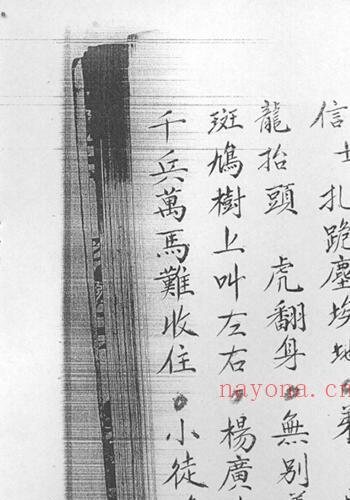 信士扎跪塵埃地
龍抬頭 虎翻身 無別
斑鳩樹上叫左右 楊廣
千兵萬馬難收住 小徒
nayona.cn